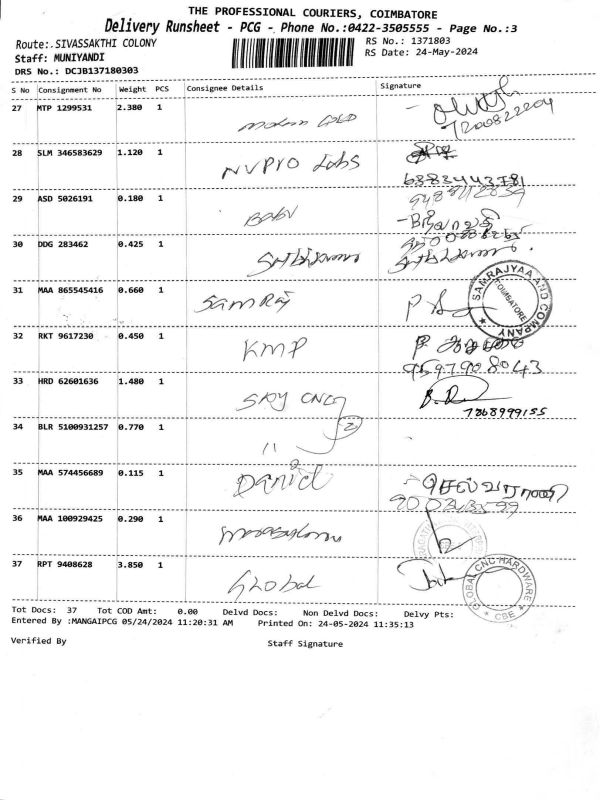 THE PROFESSIONAL COURIERS, COIMBATORE
Delivery Runsheet - PCG - Phone No.:0422-3505555 - Page No.:3
Route:.SIVASSAKTHI COLONY
RS No.: 1371803
Staff: MUNIYANDI
RS Date: 24-May-2024
DRS No.: DCJB137180303
S No Consignment No Weight PCS Consignee Details Signature
27 MTP 1299531 2.380 1
7200822204
28 SLM 346583629 1.120 1 NVPro Labs
6383443781
29 ASD 5026191 0.180 1 Babu
30 DDG 283462 0.425 1
31 MAA 865545416 0.660 1 SamRaj
SAMRAJYAA AND COMPANY
COIMBATORE
32 RKT 9617230 0.450 1 KMP
9597908043
33 HRD 62601636 1.480 1 CNC
7868999155
34 BLR 5100931257 0.770 1 11 2
35 MAA 574456689 0.115 1 Daniel செல்வராணி
36 MAA 100929425 0.290 1
37 RPT 9408628 3.850 1 Global
GLOBAL CNC HARDWARE
CBE
Tot Docs: 37 Tot COD Amt: 0.00 Delvd Docs: Non Delvd Docs: Delvy Pts:
Entered By :MANGAIPCG 05/24/2024 11:20:31 AM Printed On: 24-05-2024 11:35:13
Verified By Staff Signature